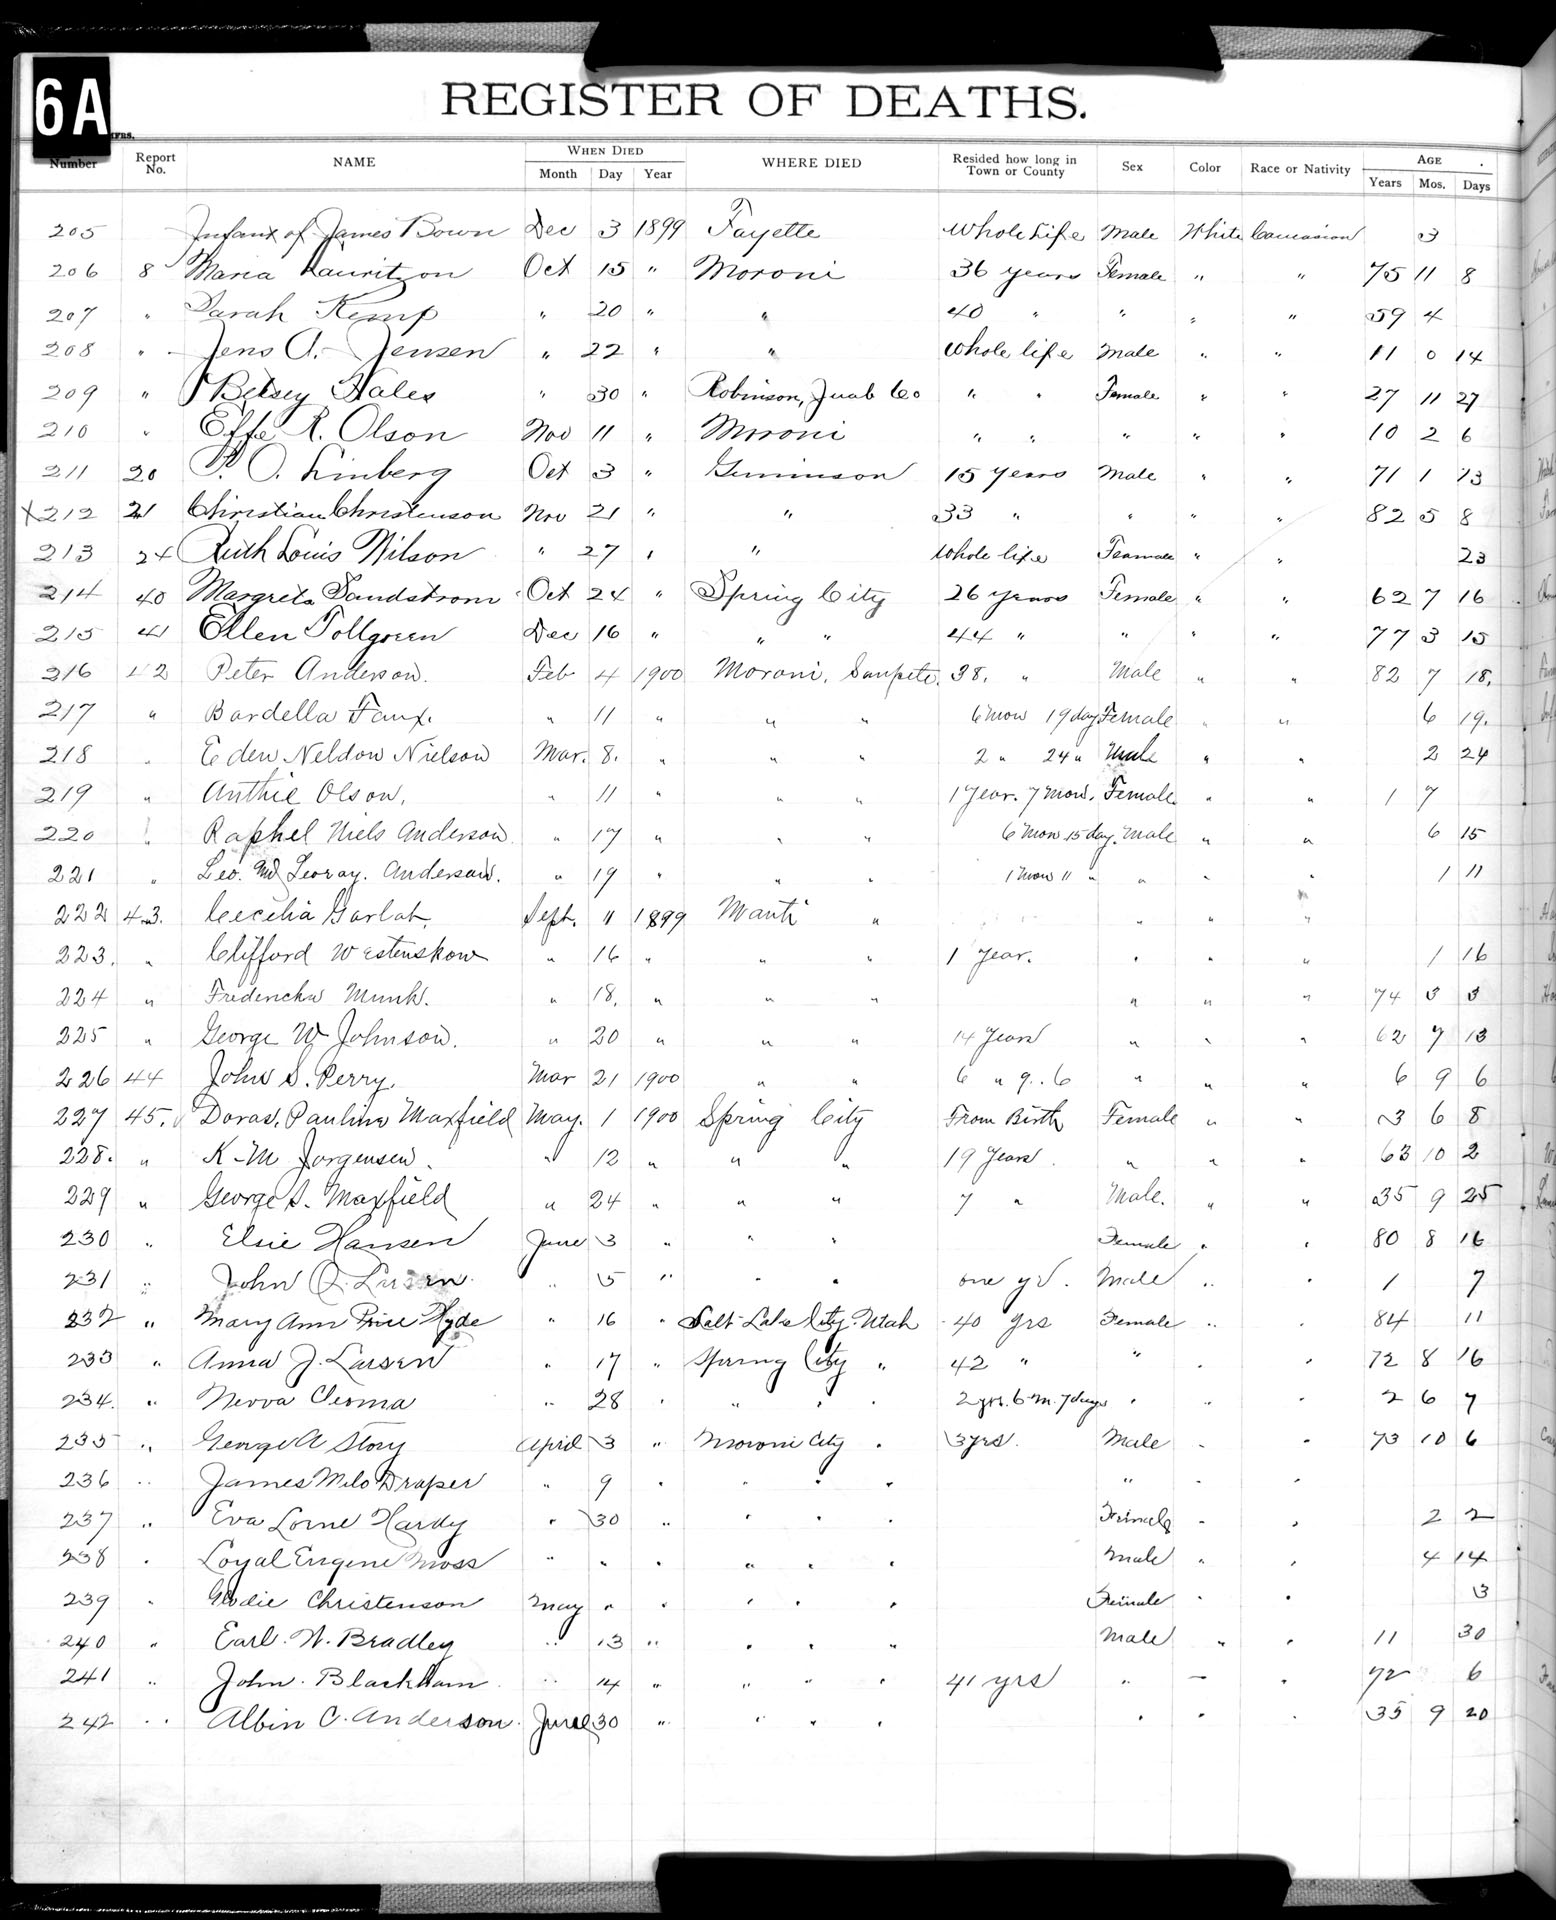 6A
REGISTER OF DEATHS.
Number Report No. NAME WHEN DIED Month Day Year WHERE DIED Resided how long in Town or County Sex Color Race or Nativity AGE Years Mos. Days
205 Infant of James Bown Dec 3 1899 Fayette Whole Life Male White Caucasion 3
206 8 Maria Lauritzon Oct 15 " Moroni 36 years Female " " 75 11 8
207 " Sarah Kemp " 20 " " 40 " " " " 59 4
208 " Jens A. Jensen " 22 " " Whole life Male " " 11 0 14
209 " Betsey Hales " 30 " Robinson, Juab Co " " Female " " 27 11 27
210 " Effe R. Olson Nov 11 " Moroni " " " " " 10 2 6
211 20 P. O. Linberg Oct 3 " Gunnison 15 years Male " " 71 1 13
X212 21 Christian Christenson Nov 21 " " 33 " " " " 82 5 8
213 24 Ruth Louis Wilson " 27 " " Whole life Feamale " " 23
214 40 Margreta Sandstrom Oct 24 " Spring City 26 years Female " " 62 7 16
215 41 Ellen Tollgreen Dec 16 " " " 44 " " " " 77 3 15
216 42 Peter Anderson. Feb 4 1900 Moroni, Sanpete. 38. " Male " " 82 7 18.
217 " Bardella Faux. " 11 " " " 6 mon 19 day Female " " 6 19.
218 " Eden Neldon Nielson Mar. 8. " " " 2 " 24 " Male " " 2 24
219 " Anthie Olson. " 11 " " " 1 Year. 7 Mon. Female " " 1 7
220 " Raphel Niels Anderson " 17 " " " 6 Mon 15 day. Male " " 6 15
221 " Leo. and Leoray. Anderson. " 19 " " " 1 Mon 11 " " " " 1 11
222 43. Cecelia Garlat. Sept. 11 1899 Manti " " " "
223. " Clifford Westenskow " 16 " " " 1 Year. " " " 1 16
224 " Fredericka Munk. " 18. " " " " " " 74 3 3
225 " George W Johnson. " 20 " " " 14 Years " " " 62 7 13
226 44 John S. Perry. Mar 21 1900 " " 6 " 9 .. 6 " " " 6 9 6
227 45. Doras. Pauline Maxfield May. 1 1900 Spring City From Birth Female " " 3 6 8
228. " K-M Jorgensen. " 12 " " " 19 Years. " " " 63 10 2
229 " George S. Maxfield " 24 " " " 7 " Male. " " 35 9 25
230 " Elsie Hansen June 3 " " " Female " " 80 8 16
231 " John Larsen. " 5 " " " one yr. Male " " 1 7
232 " Mary Ann Price Hyde " 16 " Salt Lake City. Utah 40 yrs Female " " 84 11
233 " Anna J. Larsen " 17 " Spring City " 42 " " " " 72 8 16
234. " Nerva Cleoma " 28 " " " 2 yrs. 6 m. 7 days " " " 2 6 7
235 " George A Story April 3 " Moroni City " 3 yrs. Male " " 73 10 6
236 " James Milo Draper " 9 " " " " " "
237 " Eva Lorne Hardy " 30 " " " Female " " 2 2
238 " Loyal Eugene Moss " " " " " Male " " 4 14
239 " Christenson May " " " " Female " " 3
240 " Earl. W. Bradley " 13 " " " Male " " 11 30
241 " John. Blackham " 14 " " " 41 yrs " " " 72 6
242 " Albin C. Anderson. June 30 " " " " " " 35 9 20